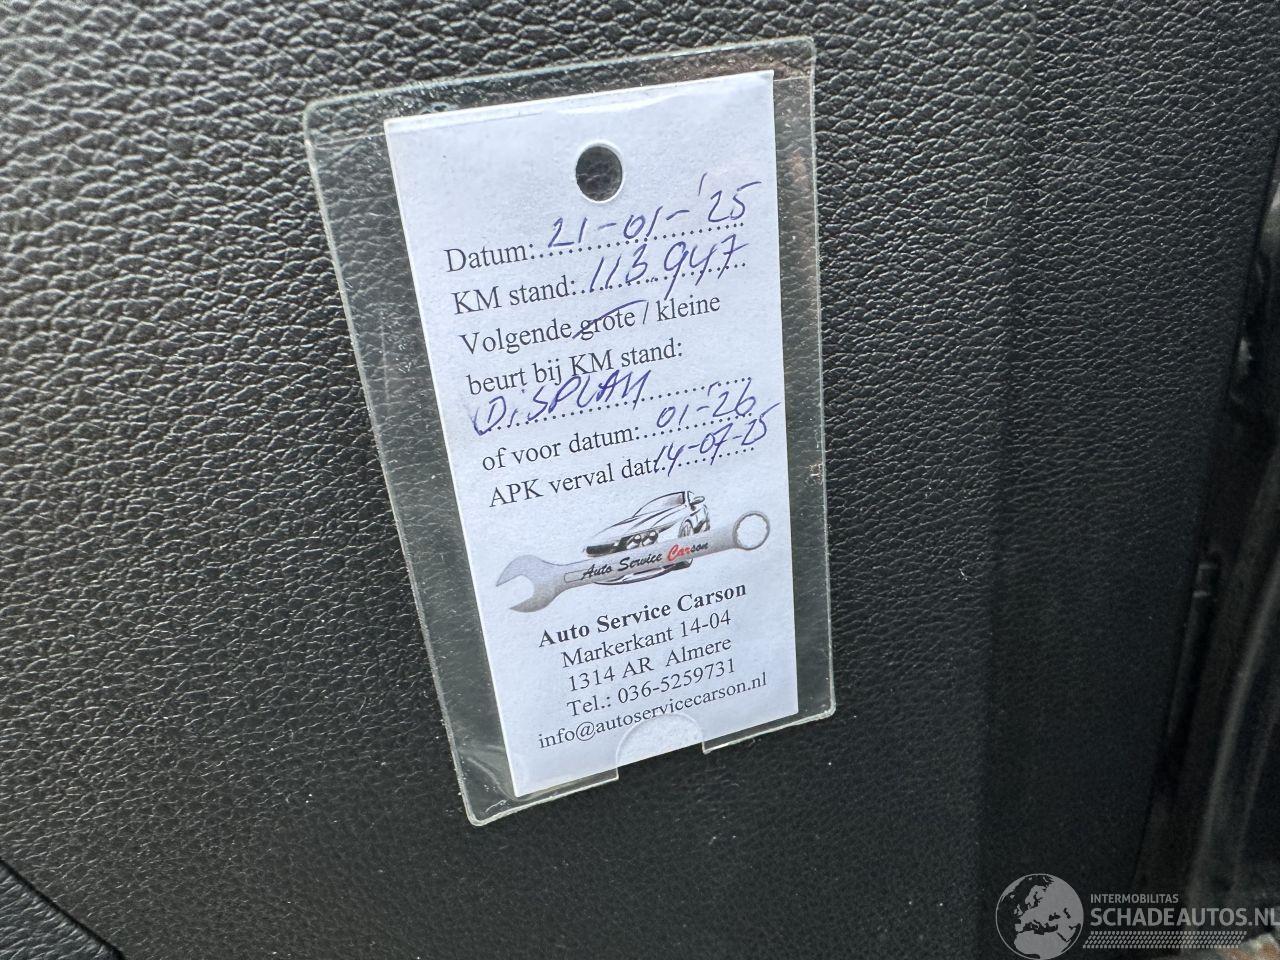 Datum: 21-01-'25
KM stand: 113.947
Volgende grote / kleine
beurt bij KM stand:
DiSPLAY
of voor datum: 01-'26
APK verval dat: 14-07-25
Auto Service Carson
Auto Service Carson
Markerkant 14-04
1314 AR Almere
Tel.: 036-5259731
info@autoservicecarson.nl
INTERMOBILITAS
SCHADEAUTOS.NL